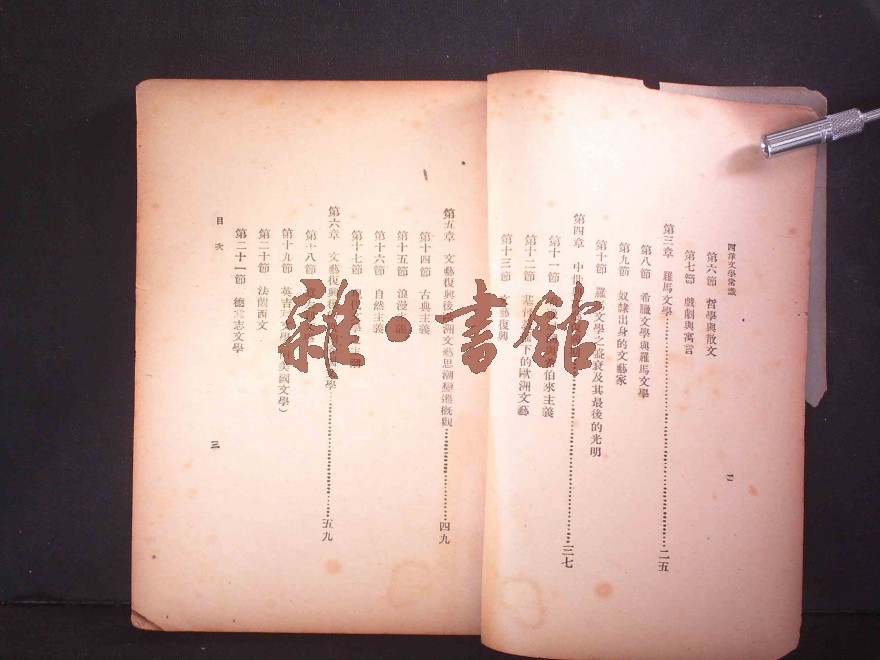 西洋文學常識
第六節 哲學與散文
第七節 戲劇與寓言
第三章 羅馬文學……二五
第八節 希臘文學與羅馬文學
第九節 奴隸出身的文藝家
第十節 羅馬文學之衰及其最後的光明
第四章 中世……三七
第十一節 希伯來主義
第十二節 基督下的歐洲文藝
第十三節 文藝復興
二
第五章 文藝復興後歐洲文藝思潮變遷概觀……四九
第十四節 古典主義
第十五節 浪漫主義
第十六節 自然主義
第十七節
第六章 文藝復興後學……五九
第十八節
第十九節 英吉利文學(美國文學)
第二十節 法蘭西文
第二十一節 德意志文學
目次
三
雜·書館